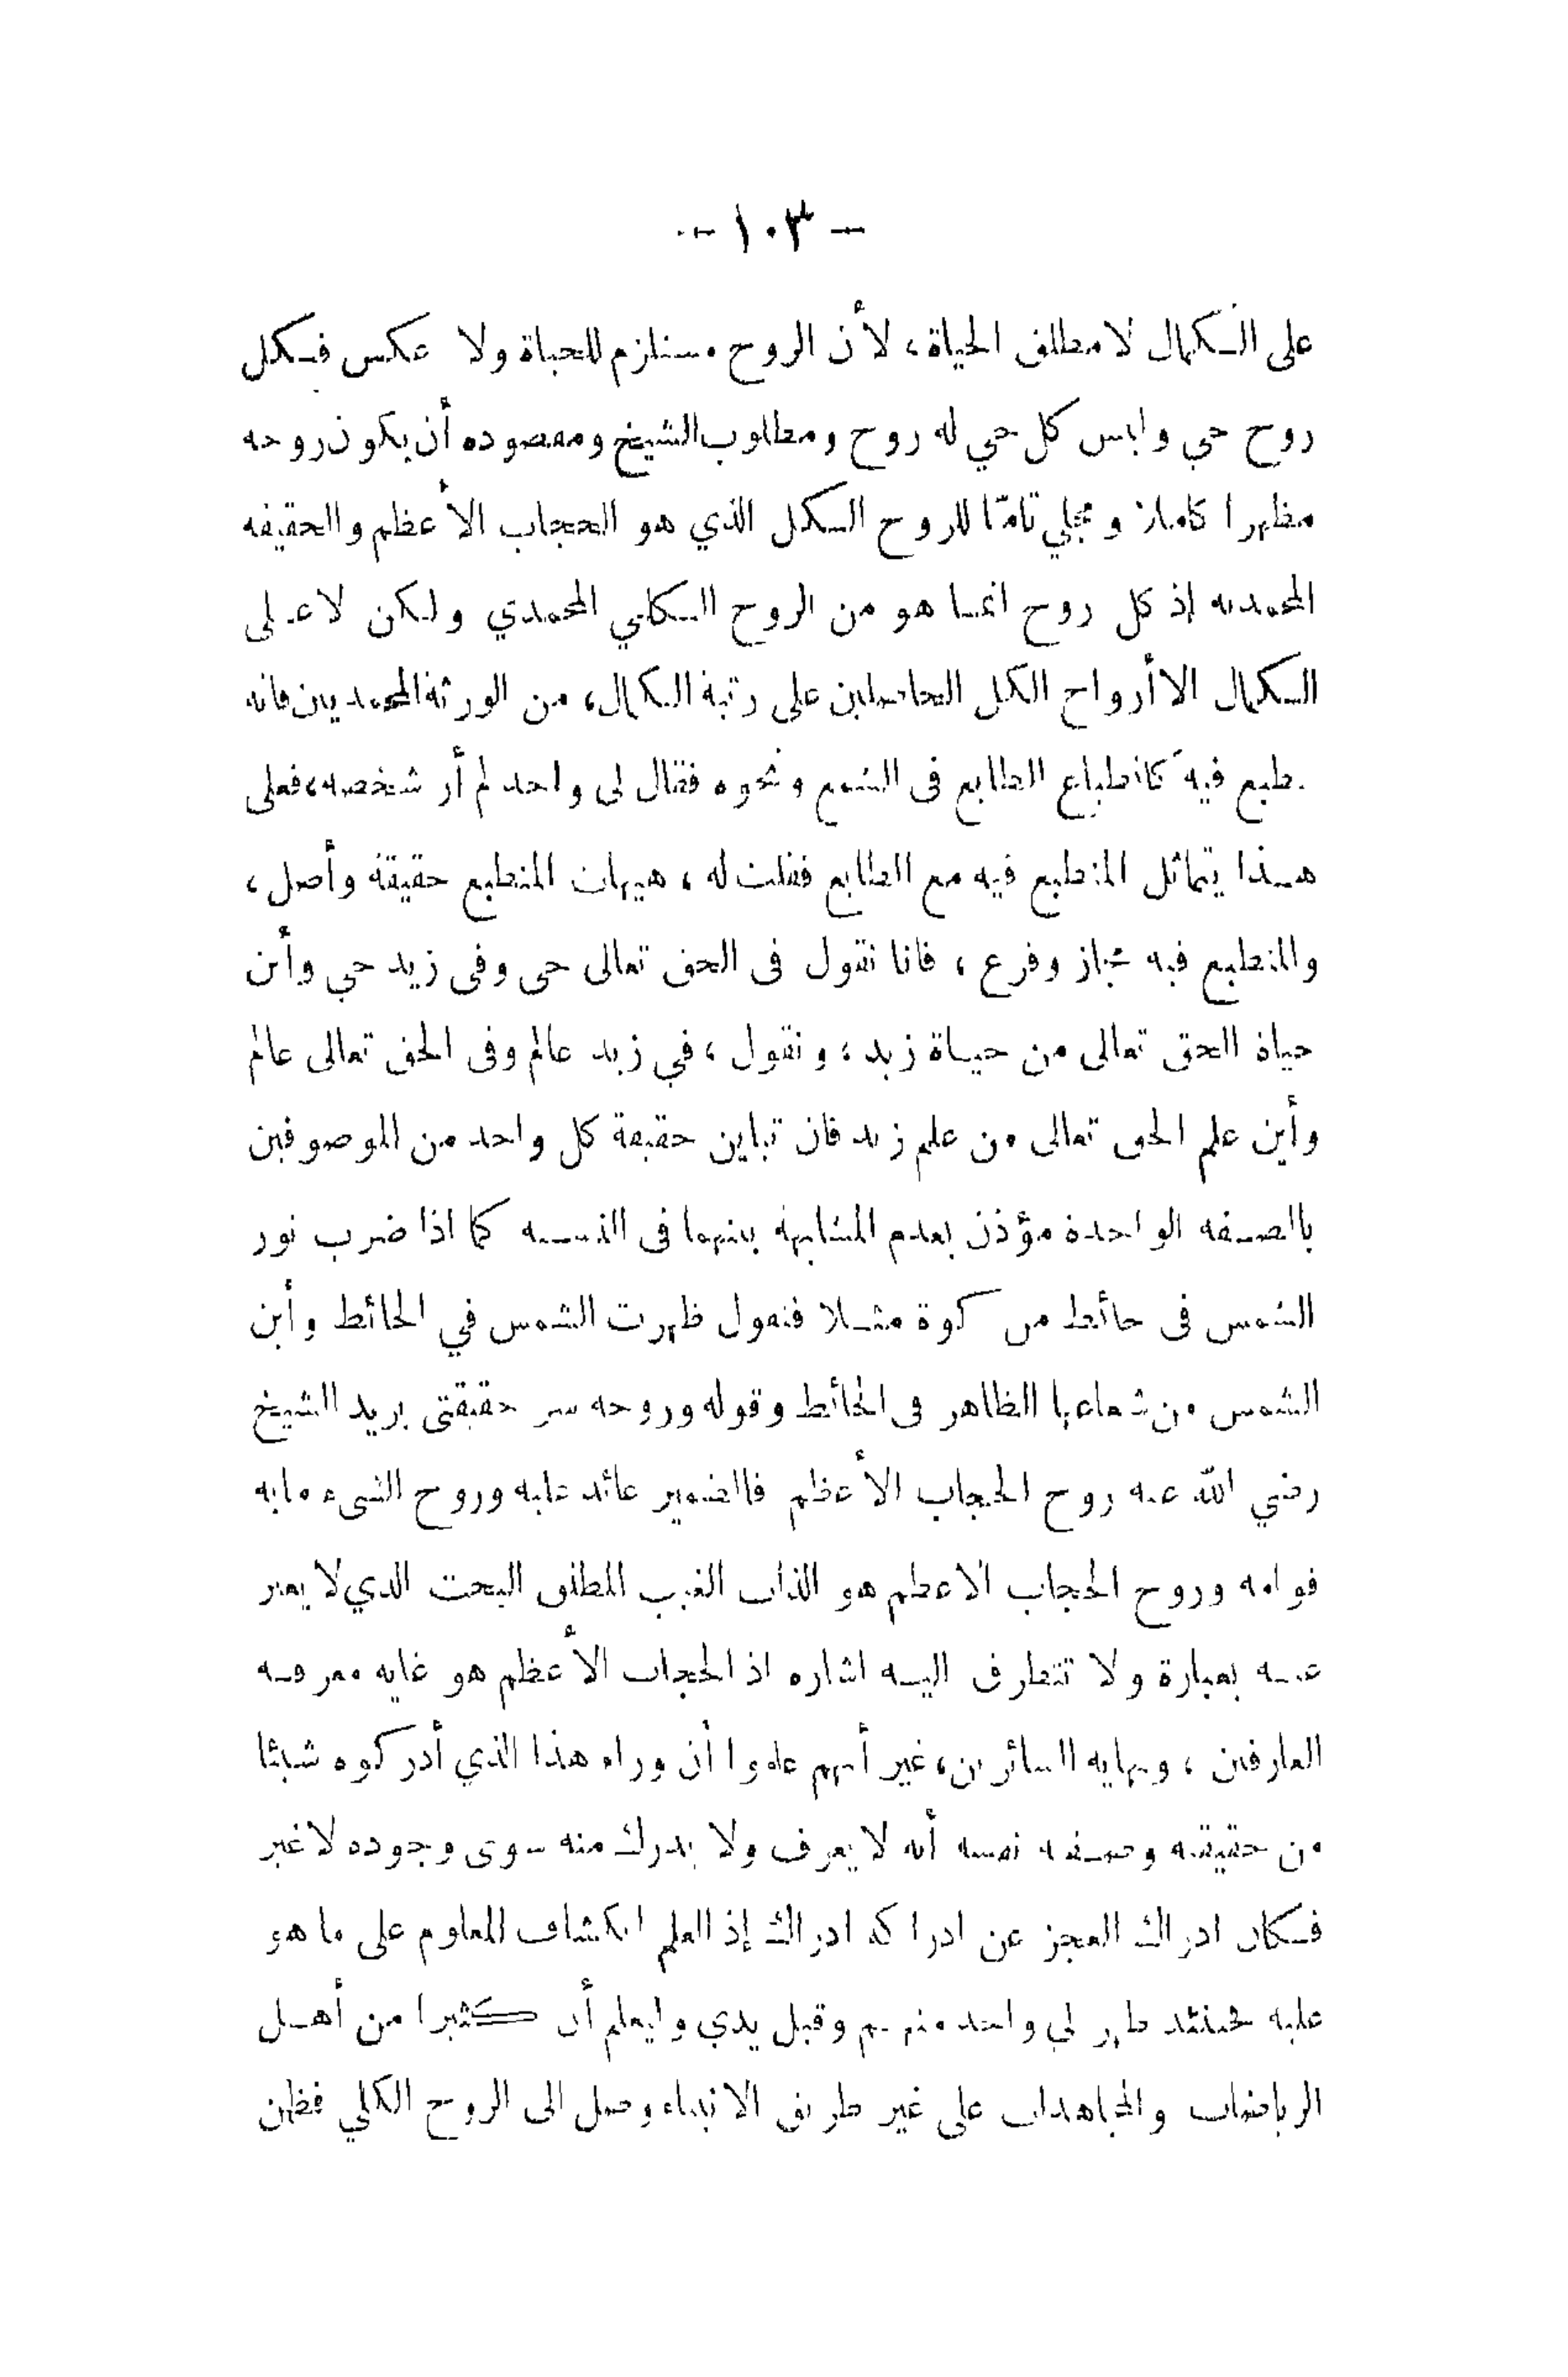 - ١٠٣ -
على الكمال لا مطلق الحياة، لأن الروح مستلزم للحياة ولا عكس فكل
روح حي وليس كل حي له روح ومطلوب الشيخ ومقصوده أن يكون روحه
مظهرا كاملا ومجلي تامّا للروح الكل الذي هو الحجاب الأعظم والحقيقة
المحمديه إذ كل روح انما هو من الروح الكلي المحمدي ولكن لا على
الكمال الا أرواح الكل الحاصلين على رتبة الكمال، من الورثة المحمديين فانه
يطبع فيه كانطباع الطابع فى الشمع ونحوه فقال لى واحد لم أر شخصه، فعلى
هذا يتماثل المنطبع فيه مع الطابع فقلت له، هيهات المنطبع حقيقة وأصل،
والمنطبع فيه مجاز وفرع، فانا نقول فى الحق تعالى حى وفى زيد حي وأين
حياة الحق تعالى من حياة زيد، ونقول، في زيد عالم وفى الحق تعالى عالم
وأين علم الحق تعالى من علم زيد فان تباين حقيقة كل واحد من الموصوفين
بالصفه الواحدة مؤذن بعدم المشابهة بينهما فى النسبه كما اذا ضرب نور
الشمس فى حائط من كوة مثلا فنقول ظهرت الشمس في الحائط وأين
الشمس من شعاعها الظاهر فى الحائط وقوله وروحه سر حقيقتى يريد الشيخ
رضي الله عنه روح الحجاب الأعظم فالضمير عائد عليه وروح الشىء ما به
قوامه وروح الحجاب الاعظم هو الذات الغيب المطلق البحت الذي لا يعبر
عنه بعبارة ولا تتطرف اليه اشاره اذ الحجاب الأعظم هو غايه معرفه
العارفين، ونهايه السائرين، غير أنهم علموا أن وراء هذا الذي أدركوه شيئا
من حقيقته وصفه نفسه أنه لا يعرف ولا يدرك منه سوى وجوده لا غير
فكان ادراك العجز عن ادراكه ادراك إذ العلم انكشاف المعلوم على ما هو
عليه فحينئد ظهر لي واحد منهم وقبل يدي وليعلم أن كثيرا من أهل
الرياضات والمجاهدات على غير طريق الانبياء وصل الى الروح الكلي فظن